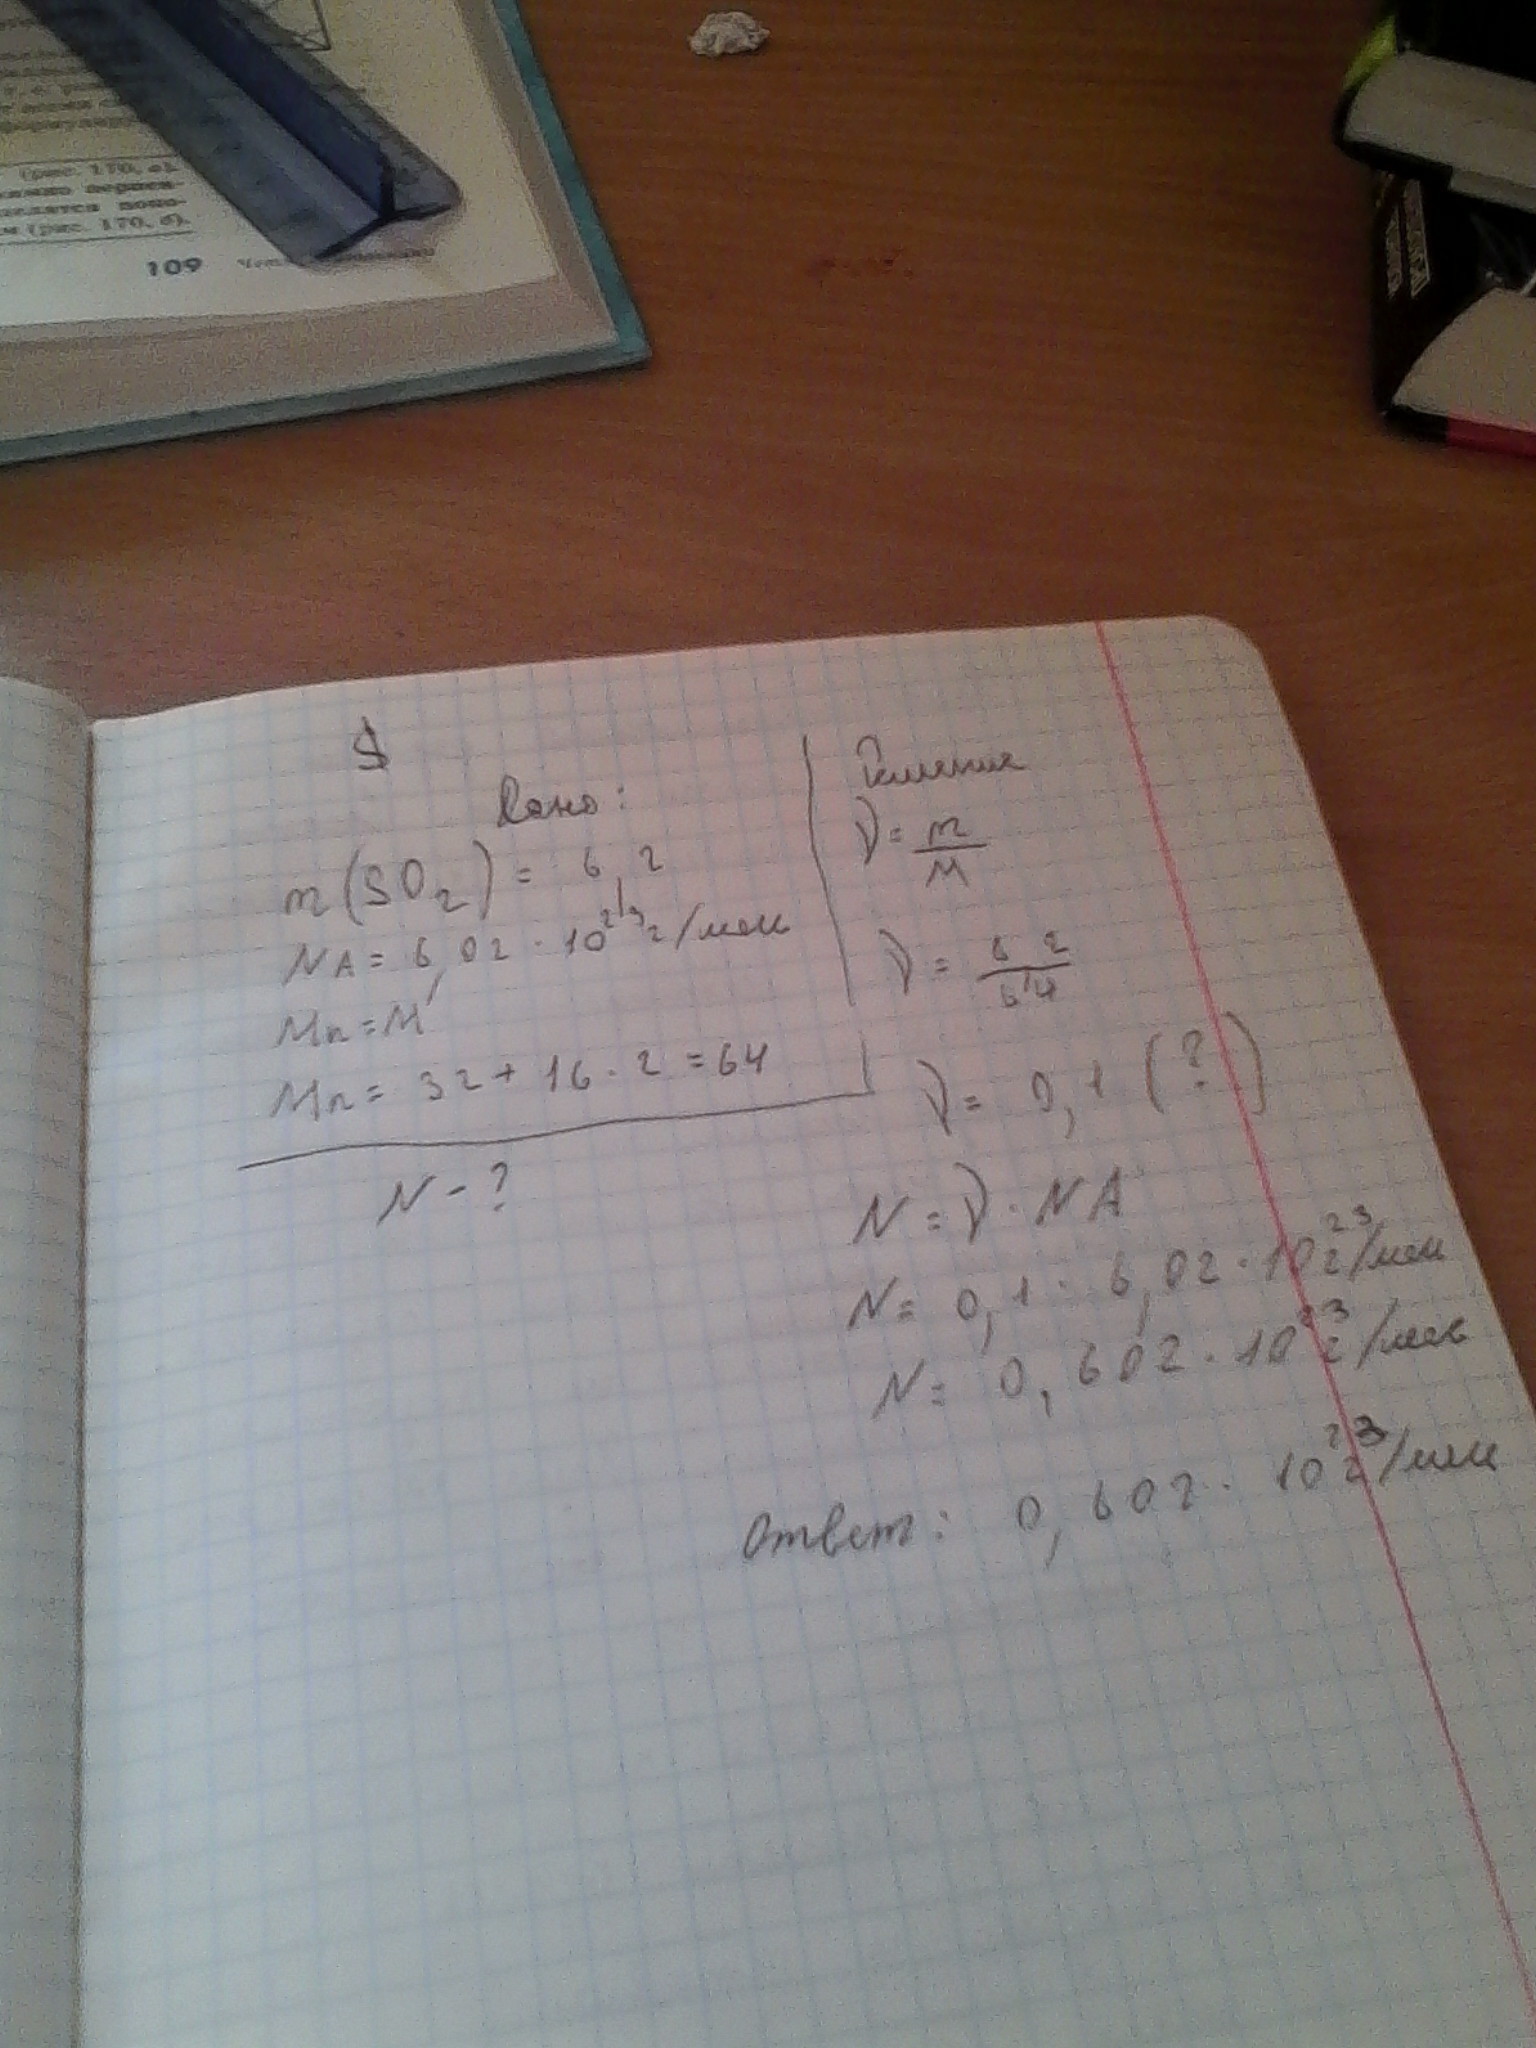 (рис. 170, а).
(рис. 170, б).
109
Дано:
m(SO2) = 6 г
NA = 6,02 · 10²³ г/моль
Mr = M
Mr = 32 + 16 · 2 = 64
N - ?
Решение
ν = m/M
ν = 6 г/64
ν = 0,1 (?)
N = ν · NA
N = 0,1 · 6,02 · 10²³ г/моль
N = 0,602 · 10²³ г/моль
Ответ: 0,602 · 10²³ г/моль